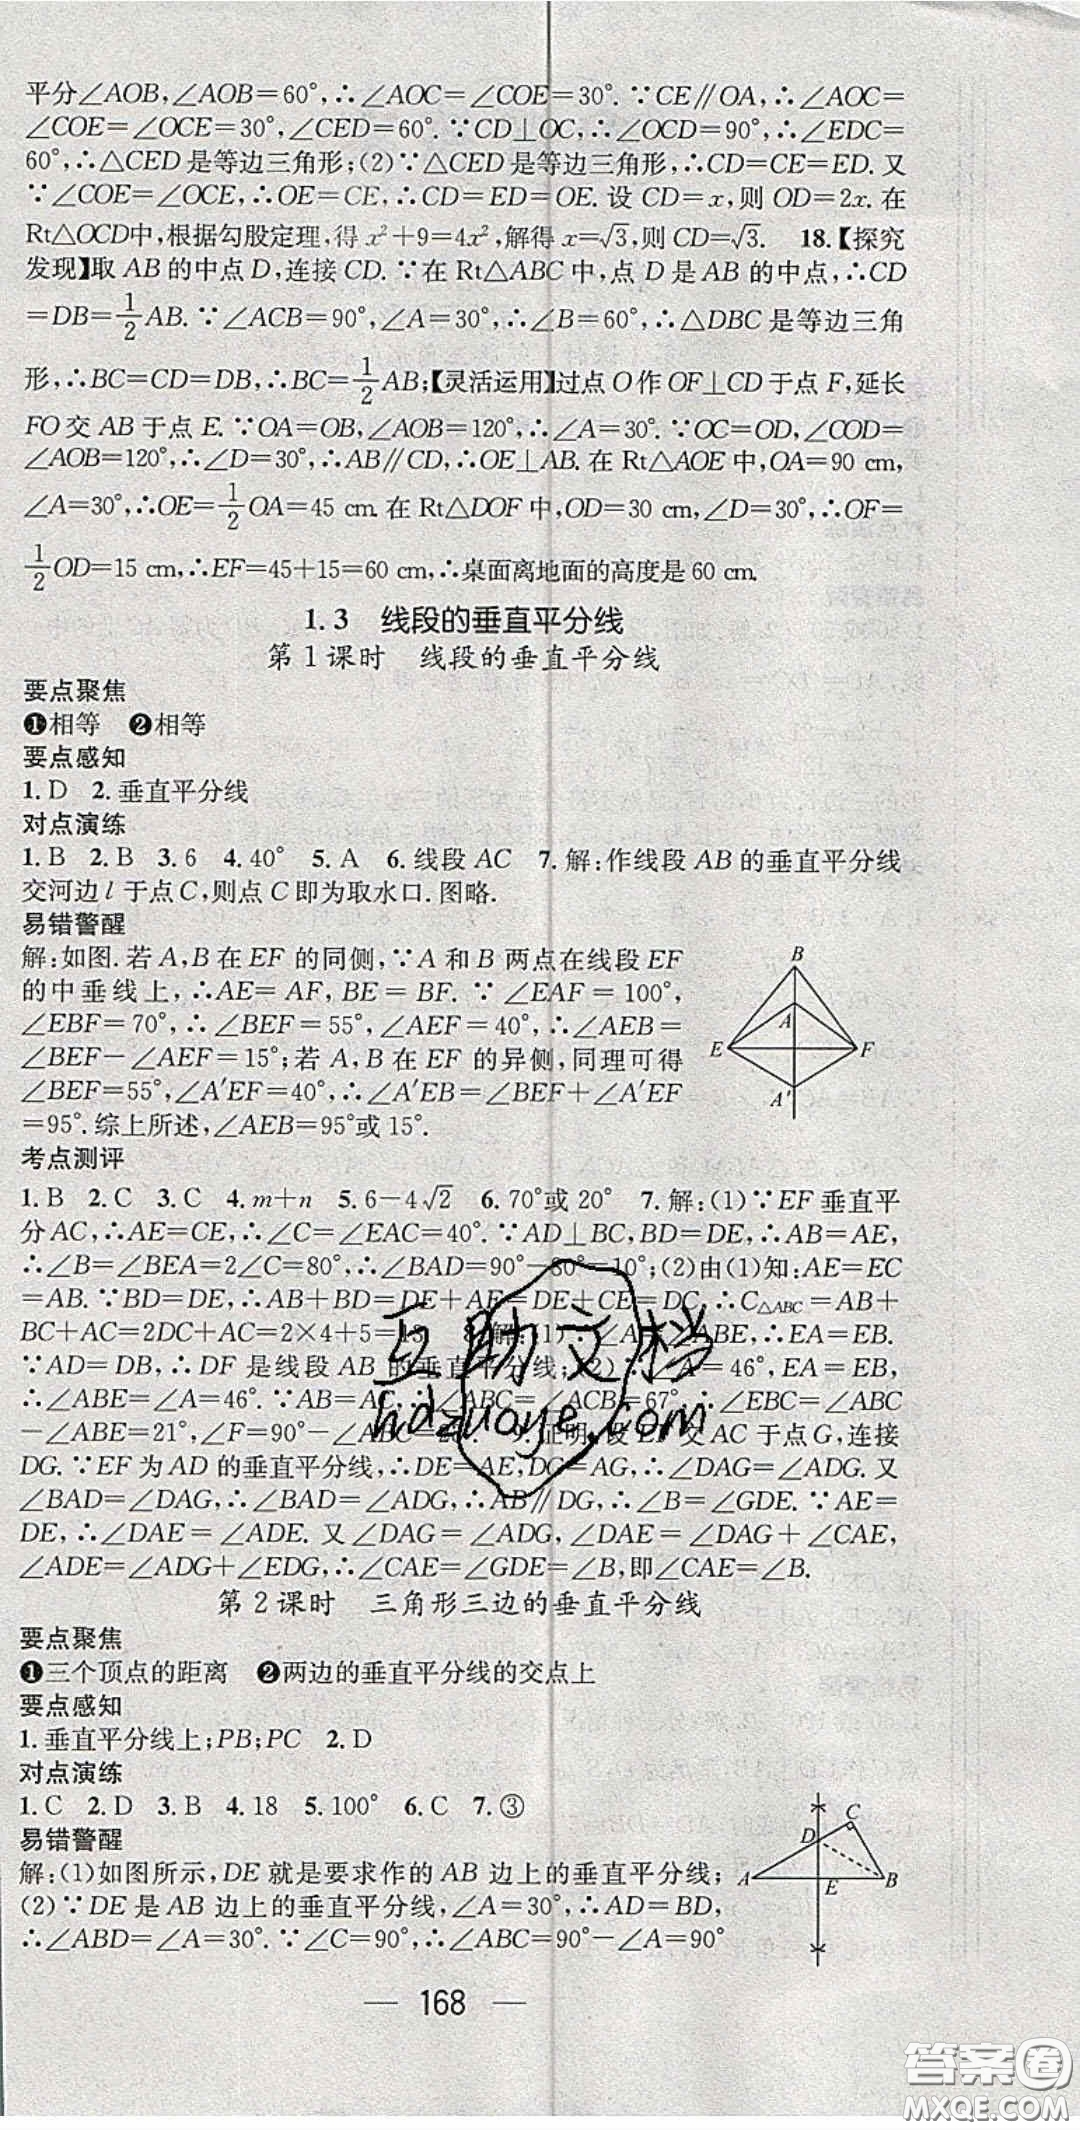 平分∠AOB,∠AOB=60°,∴∠AOC=∠COE=30°.∵CE∥OA,∴∠AOC=
∠COE=∠OCE=30°,∠CED=60°.∵CD⊥OC,∴∠OCD=90°,∴∠EDC=
60°,∴△CED是等边三角形;(2)∵△CED是等边三角形,∴CD=CE=ED.又
∵∠COE=∠OCE,∴OE=CE,∴CD=ED=OE.设CD=x,则OD=2x.在
Rt△OCD中,根据勾股定理,得x²+9=4x²,解得x=√3,则CD=√3. 18.【探究
发现】取AB的中点D,连接CD.∵在Rt△ABC中,点D是AB的中点,∴CD
=DB=1/2AB.∵∠ACB=90°,∠A=30°,∴∠B=60°,∴△DBC是等边三角
形,∴BC=CD=DB,∴BC=1/2AB;【灵活运用】过点O作OF⊥CD于点F,延长
FO交AB于点E.∵OA=OB,∠AOB=120°,∴∠A=30°.∵OC=OD,∠COD=
∠AOB=120°,∴∠D=30°,∴AB∥CD,∴OE⊥AB.在Rt△AOE中,OA=90 cm,
∠A=30°,∴OE=1/2OA=45 cm.在Rt△DOF中,OD=30 cm,∠D=30°,∴OF=
1/2OD=15 cm,∴EF=45+15=60 cm,∴桌面离地面的高度是60 cm.
1.3 线段的垂直平分线
第1课时 线段的垂直平分线
要点聚焦
❶相等 ❷相等
要点感知
1.D 2.垂直平分线
对点演练
1.B 2.B 3.6 4.40° 5.A 6.线段AC 7.解:作线段AB的垂直平分线
交河边l于点C,则点C即为取水口.图略.
易错警醒
解:如图.若A,B在EF的同侧,∵A和B两点在线段EF
的中垂线上,∴AE=AF,BE=BF.∵∠EAF=100°,
∠EBF=70°,∴∠BEF=55°,∠AEF=40°,∴∠AEB=
∠BEF-∠AEF=15°;若A,B在EF的异侧,同理可得
∠BEF=55°,∠A′EF=40°,∴∠A′EB=∠BEF+∠A′EF
=95°.综上所述,∠AEB=95°或15°.
B
A
E
F
A′
考点测评
1.B 2.C 3.C 4.m+n 5.6-4√2 6.70°或20° 7.解:(1)∵EF垂直平
分AC,∴AE=CE,∴∠C=∠EAC=40°.∵AD⊥BC,BD=DE,∴AB=AE,
∴∠B=∠BEA=2∠C=80°,∴∠BAD=90°-80°=10°;(2)由(1)知:AE=EC
=AB.∵BD=DE,∴AB+BD=DE+AE=DE+CE=DC,∴C△ABC=AB+
BC+AC=2DC+AC=2×4+5=13. 8.解:(1)∵∠A=∠ABE,∴EA=EB.
∵AD=DB,∴DF是线段AB的垂直平分线;(2)∵∠A=46°,EA=EB,
∴∠ABE=∠A=46°.∵AB=AC,∴∠ABC=∠ACB=67°,∴∠EBC=∠ABC
-∠ABE=21°,∠F=90°-∠ABC= 9.证明:设EF交AC于点G,连接
DG.∵EF为AD的垂直平分线,∴DE=AE,DG=AG,∴∠DAG=∠ADG.又
∠BAD=∠DAG,∴∠BAD=∠ADG,∴AB∥DG,∴∠B=∠GDE.∵AE=
DE,∴∠DAE=∠ADE.又∠DAG=∠ADG,∠DAE=∠DAG+∠CAE,
∠ADE=∠ADG+∠EDG,∴∠CAE=∠GDE=∠B,即∠CAE=∠B.
互助文档
hdzuoye.com
第2课时 三角形三边的垂直平分线
要点聚焦
❶三个顶点的距离 ❷两边的垂直平分线的交点上
要点感知
1.垂直平分线上;PB;PC 2.D
对点演练
1.C 2.D 3.B 4.18 5.100° 6.C 7.③
易错警醒
解:(1)如图所示,DE就是要求作的AB边上的垂直平分线;
(2)∵DE是AB边上的垂直平分线,∠A=30°,∴AD=BD,
∴∠ABD=∠A=30°.∵∠C=90°,∴∠ABC=90°-∠A=90°
C
D
A
E
B
— 168 —
答案圈
MXQE.COM